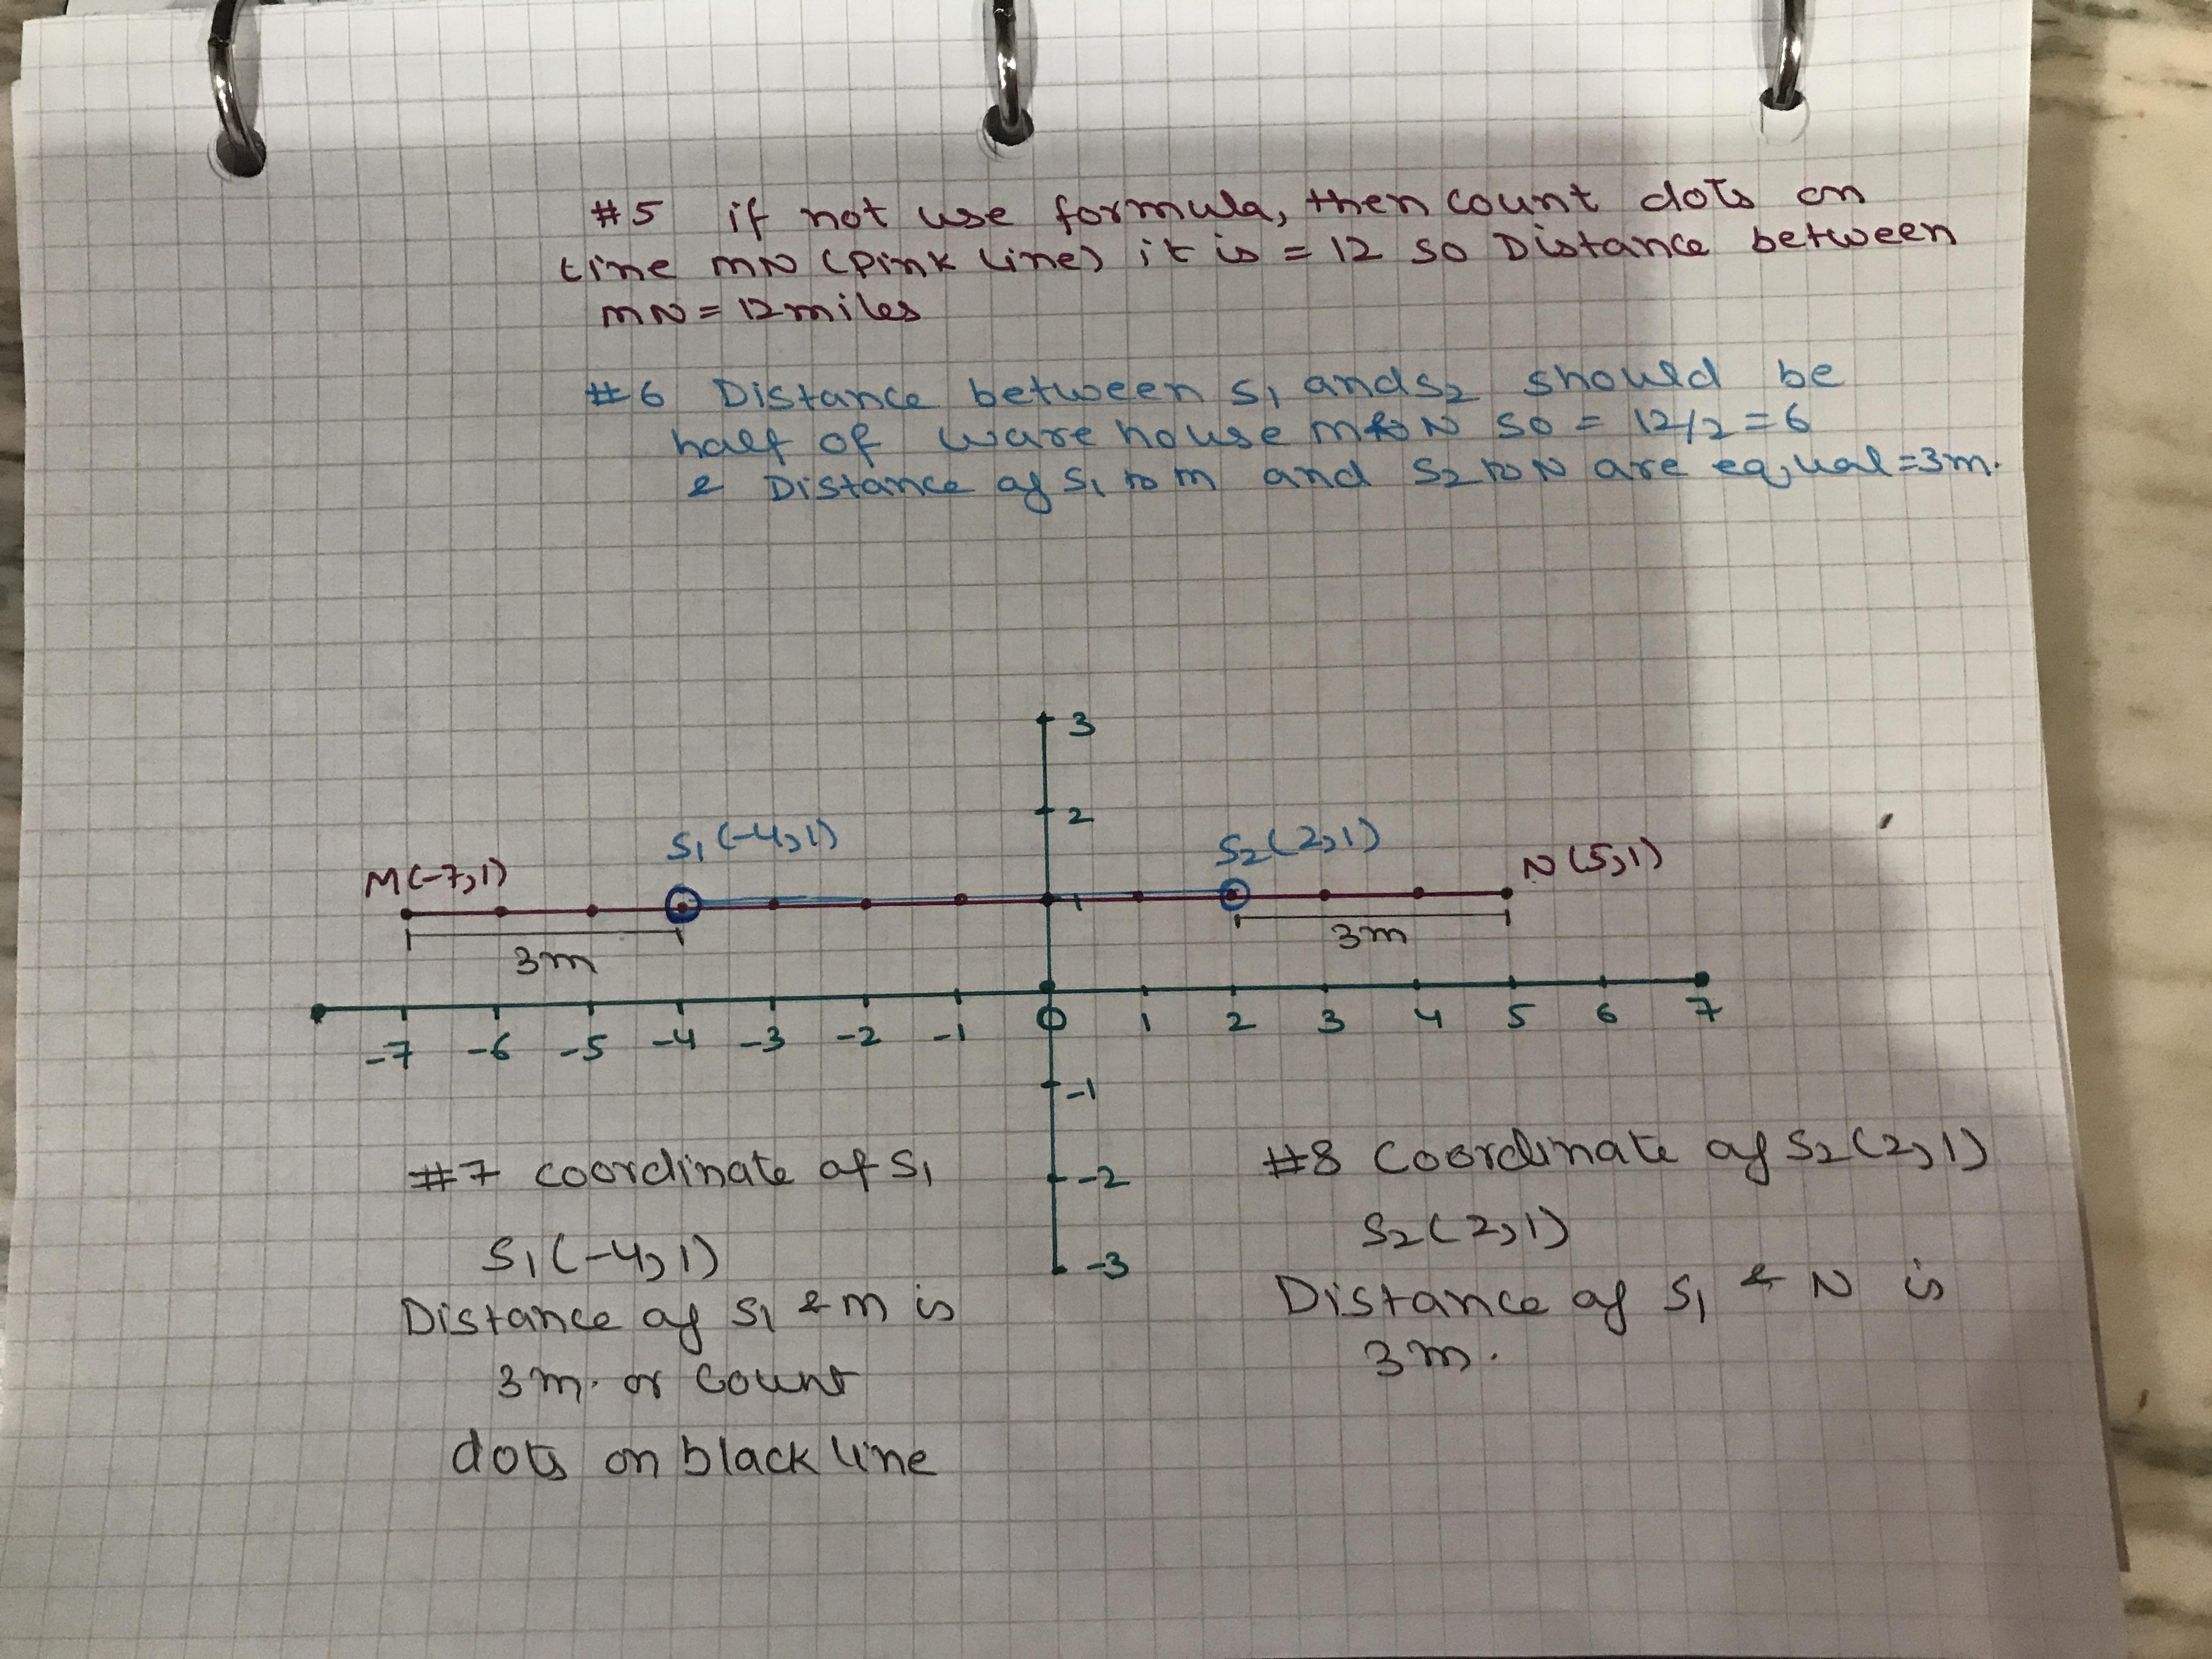 #5 if not use formula, then count dots on
line MN (Pink line) it is = 12 so Distance between
MN = 12 miles
#6 Distance between S1 and S2 should be
half of ware house M to N so = 12/2 = 6
& Distance of S1 to M and S2 to N are equal = 3m.
3
2
S1 (-4,1)
S2 (2,1)
M(-7,1)
N (5,1)
1
3m
3m
-7 -6 -5 -4 -3 -2 -1 0 1 2 3 4 5 6 7
-1
-2
-3
#7 coordinate of S1
S1 (-4,1)
Distance of S1 & M is
3m. or Count
dots on black line
#8 Coordinate of S2 (2,1)
S2 (2,1)
Distance of S1 & N is
3m.